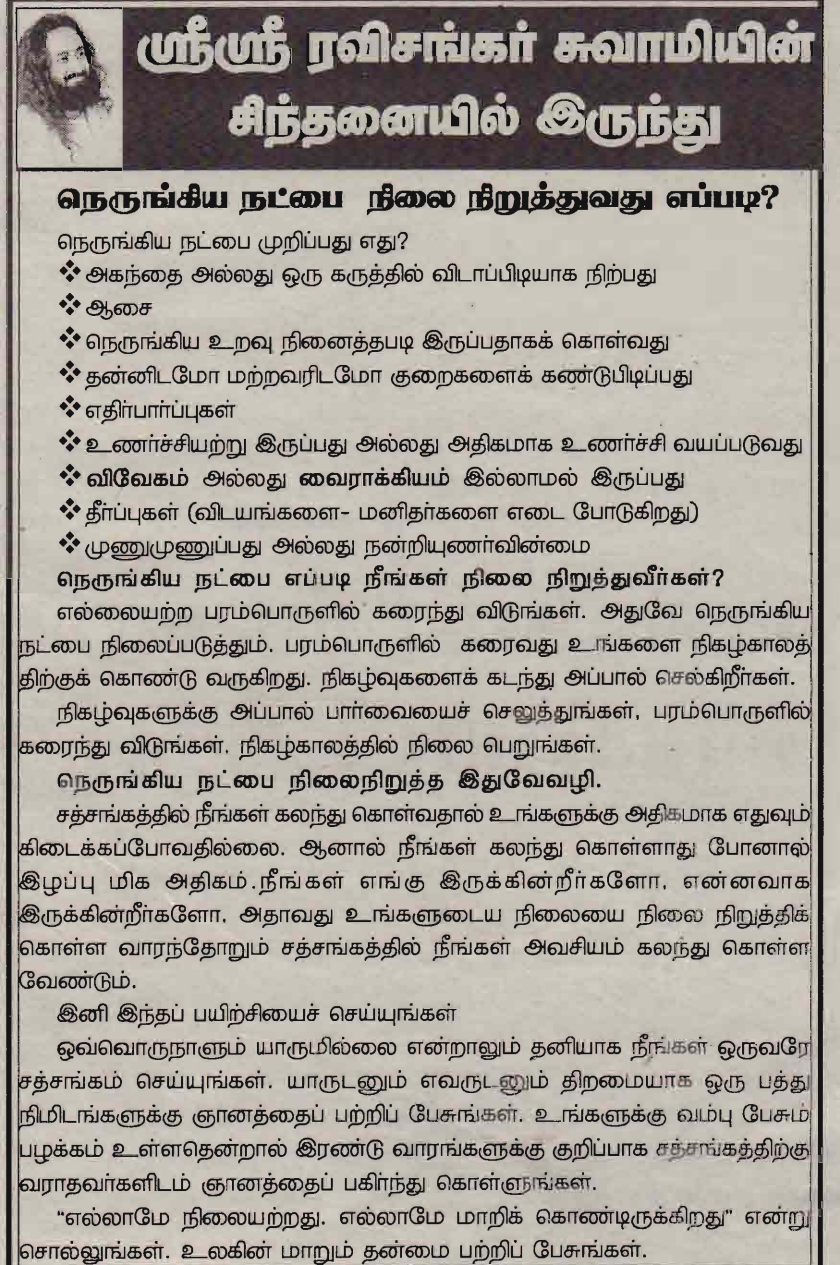 ஸ்ரீஸ்ரீ ரவிசங்கர் சுவாமியின்
சிந்தனையில் இருந்து
நெருங்கிய நட்பை நிலை நிறுத்துவது எப்படி?
நெருங்கிய நட்பை முறிப்பது எது?
❖ அகந்தை அல்லது ஒரு கருத்தில் விடாப்பிடியாக நிற்பது
❖ ஆசை
❖ நெருங்கிய உறவு நினைத்தபடி இருப்பதாகக் கொள்வது
❖ தன்னிடமோ மற்றவரிடமோ குறைகளைக் கண்டுபிடிப்பது
❖ எதிர்பார்ப்புகள்
❖ உணர்ச்சியற்று இருப்பது அல்லது அதிகமாக உணர்ச்சி வயப்படுவது
❖ விவேகம் அல்லது வைராக்கியம் இல்லாமல் இருப்பது
❖ தீர்ப்புகள் (விடயங்களை- மனிதர்களை எடை போடுகிறது)
❖ முணுமுணுப்பது அல்லது நன்றியுணர்வின்மை
நெருங்கிய நட்பை எப்படி நீங்கள் நிலை நிறுத்துவீர்கள்?
எல்லையற்ற பரம்பொருளில் கரைந்து விடுங்கள். அதுவே நெருங்கிய
நட்பை நிலைப்படுத்தும். பரம்பொருளில் கரைவது உங்களை நிகழ்காலத்
திற்குக் கொண்டு வருகிறது. நிகழ்வுகளைக் கடந்து அப்பால் செல்கிறீர்கள்.
நிகழ்வுகளுக்கு அப்பால் பார்வையைச் செலுத்துங்கள், பரம்பொருளில்
கரைந்து விடுங்கள். நிகழ்காலத்தில் நிலை பெறுங்கள்.
நெருங்கிய நட்பை நிலைநிறுத்த இதுவேவழி.
சத்சங்கத்தில் நீங்கள் கலந்து கொள்வதால் உங்களுக்கு அதிகமாக எதுவும்
கிடைக்கப்போவதில்லை. ஆனால் நீங்கள் கலந்து கொள்ளாது போனால்
இழப்பு மிக அதிகம்.நீங்கள் எங்கு இருக்கின்றீர்களோ, என்னவாக
இருக்கின்றீர்களோ, அதாவது உங்களுடைய நிலையை நிலை நிறுத்திக்
கொள்ள வாரந்தோறும் சத்சங்கத்தில் நீங்கள் அவசியம் கலந்து கொள்ள
வேண்டும்.
இனி இந்தப் பயிற்சியைச் செய்யுங்கள்
ஒவ்வொருநாளும் யாருமில்லை என்றாலும் தனியாக நீங்கள் ஒருவரே
சத்சங்கம் செய்யுங்கள். யாருடனும் எவருடனும் திறமையாக ஒரு பத்து
நிமிடங்களுக்கு ஞானத்தைப் பற்றிப் பேசுங்கள். உங்களுக்கு வம்பு பேசும்
பழக்கம் உள்ளதென்றால் இரண்டு வாரங்களுக்கு குறிப்பாக சத்சங்கத்திற்கு
வராதவர்களிடம் ஞானத்தைப் பகிர்ந்து கொள்ளுங்கள்.
“எல்லாமே நிலையற்றது. எல்லாமே மாறிக் கொண்டிருக்கிறது” என்று
சொல்லுங்கள். உலகின் மாறும் தன்மை பற்றிப் பேசுங்கள்.